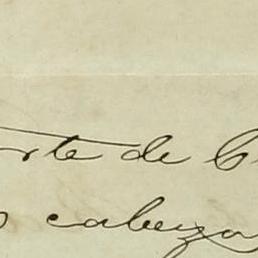 rte de
cabeza